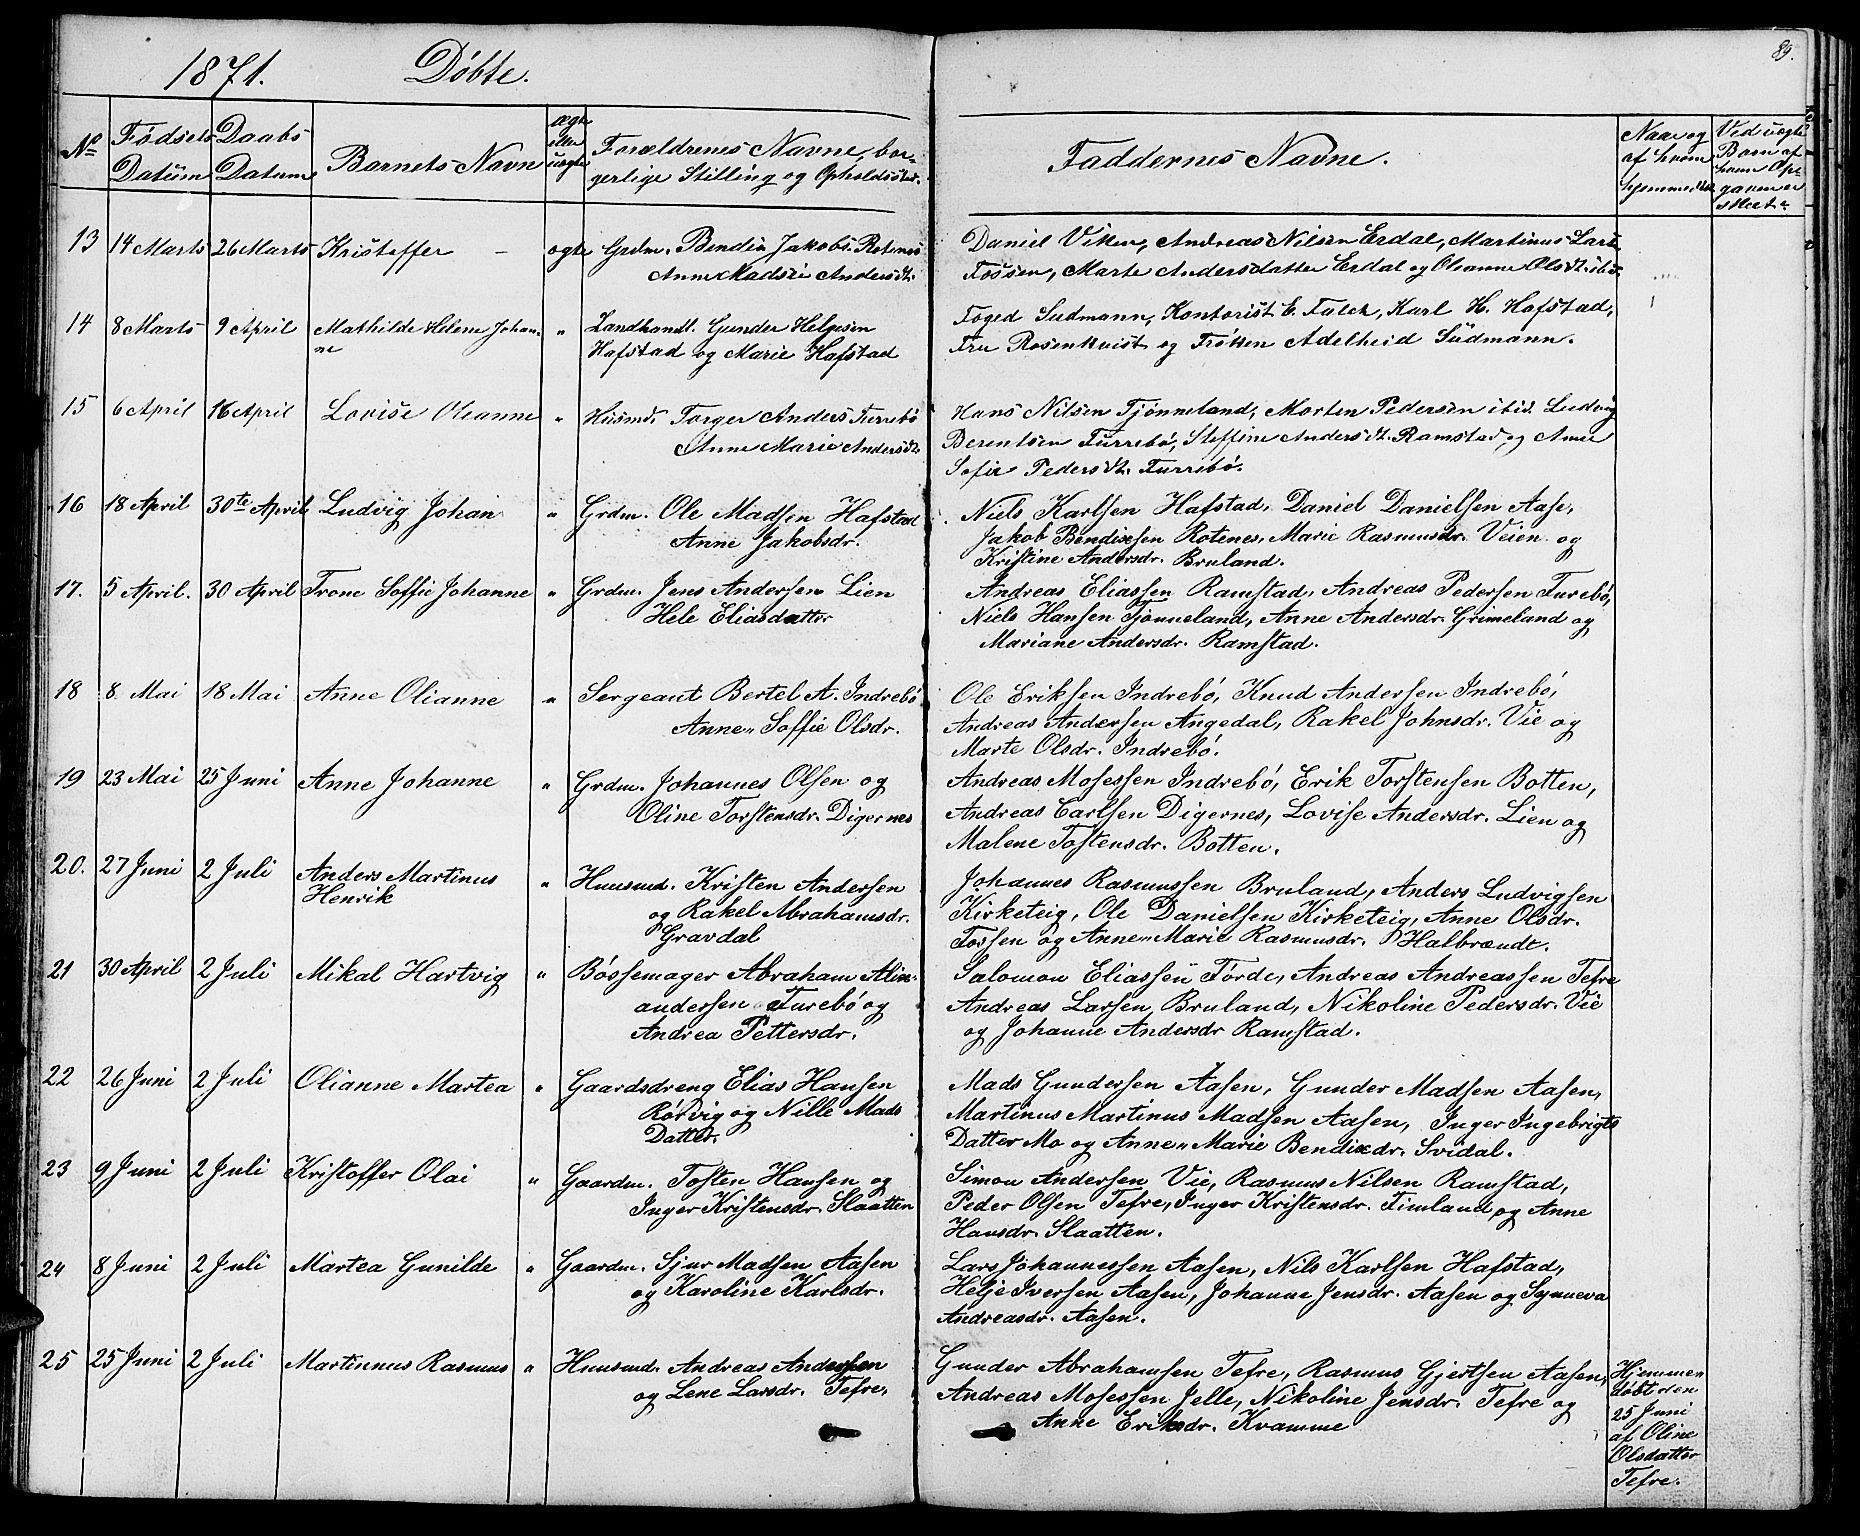 89.
1871. Døbte.
No Fødsels Datum Daabs Datum Barnets Navn ægte eller uægte Forældrenes Navne, borgerlige Stilling og Opholdssted. Faddernes Navne. Naar og af hvem hjemmedøbt Ved uægte Børn af hvem Opgaven er skeet.
13 14 Marts 26 Marts Kristoffer - ægte Grdm. Bendix Jakobs. Rotenes Daniel Viken, Andreas Nilsen Erdal, Martinus Lars.
Anne Madsine Andersdt. Fossen, Marte Andersdatter Erdal og Oleanne Olsdt. ibid.
14 8 Marts 9 April Mathilde Helene Johan- " Landhandl. Gunder Helgesen Foged Sudmann, Kontorist E. Falck, Karl H. Hafstad,
ne Hafstad og Marie Hafstad Fru Rosenkvist og Frøken Adelheid Südmann.
15 6 April 16 April Lovise Oleanne " Husmd. Torger Anders. Furrebø Hans Nilsen Tjønneland, Morten Pedersen ibid. Ludvig
Anne Marie Andersdt. Berentsen Furrebø, Steffine Andersdt. Ramstad, og Anne
Sofie Pedersdt. Furrebø.
16 18 April 30te April Ludvig Johan " Grdm. Ole Madsen Hafstad Niels Karlsen Hafstad, Daniel Danielsen Aase,
Anne Jakobsdr. Jakob Bendixsen Rotenes, Marie Rasmusdr. Veien og
Kristine Andersdr. Bruland.
17. 5 April. 30 April Trone Soffie Johanne " Grdm. Jens Andersen Lien Andreas Eliassen Ramstad, Andreas Pedersen Furebø,
Hele Eliasdatter Niels Hansen Tjønneland, Anne Andersdr. Grimeland og
Mariane Andersdr. Ramstad.
18 8 Mai 18 Mai Anne Olianne " Sergeant Bertel A. Indrebø Ole Eriksen Indrebø, Knud Andersen Indrebø,
Anne Soffie Olsdr. Andreas Andersen Angedal, Rakel Johnsdr. Vie og
Marte Olsdr. Indrebø.
19 23 Mai 25 Juni Anne Johanne " Grdm. Johannes Olsen og Andreas Mosessen Indrebø, Erik Torstensen Botten,
Oline Torstensdr. Digernes Andreas Carlsen Digernes, Lovise Andersdr. Lien og
Malene Tostensdr. Botten.
20. 27 Juni 2 Juli Anders Martinus " Huusmd. Kristen Andersen Johannes Rasmussen Bruland, Anders Ludvigsen
Henrik og Rakel Abrahamsdr. Kirketeig, Ole Danielsen Kirketeig, Anne Olsdr.
Gravdal Fossen og Anne Marie Rasmusdr. Halbrændt.
21 30 April 2 Juli Mikal Hartvig " Bøssemager Abraham Alix- Salomon Eliassen Førde, Andreas Andreassen Tefre
andersen Furebø og Andreas Larsen Bruland, Nikoline Pedersdr. Vie
Andrea Pettersdr. og Johanne Andersdr Ramstad.
22 26 Juni 2 Juli Olianne Martea " Gaardsdreng Elias Hansen Mads Gundersen Aasen, Gunder Madsen Aasen,
Rørvig og Nille Mads Martinus Martinus Madsen Aasen, Inger Ingebrigts
Datter. Datter Mo og Anne Marie Bendixdr. Svidal.
23 9 Juni 2 Juli Kristoffer Olai " Gaardm. Tosten Hansen og Simon Andersen Vie, Rasmus Nilsen Ramstad,
Inger Kristensdr. Slaatten Peder Olsen Tefre, Inger Kristensdr. Fimland og Anne
Hansdr. Slaatten.
24 8 Juni 2 Juli Martea Gunilde " Gaardm. Sjur Madsen Aasen Lars Johannessen Aasen, Nils Karlsen Hafstad,
og Karoline Karlsdr. Helje Iversen Aasen, Johanne Jensdr. Aasen og Synneva
Andreasdr. Aasen.
25 25 Juni 2 Juli Martinus Rasmus " Huusmd. Andreas Andersen Gunder Abrahamsen Tefre, Rasmus Gjertsen Aasen,
og Lene Larsdr. Tefre, Andreas Mosessen Jelle, Nikoline Jensdr. Tefre og
Anne Eriksdr. Kvamme
Hjemme-
døbt den
25 Juni
af Oline
Olsdatter
Tefre.